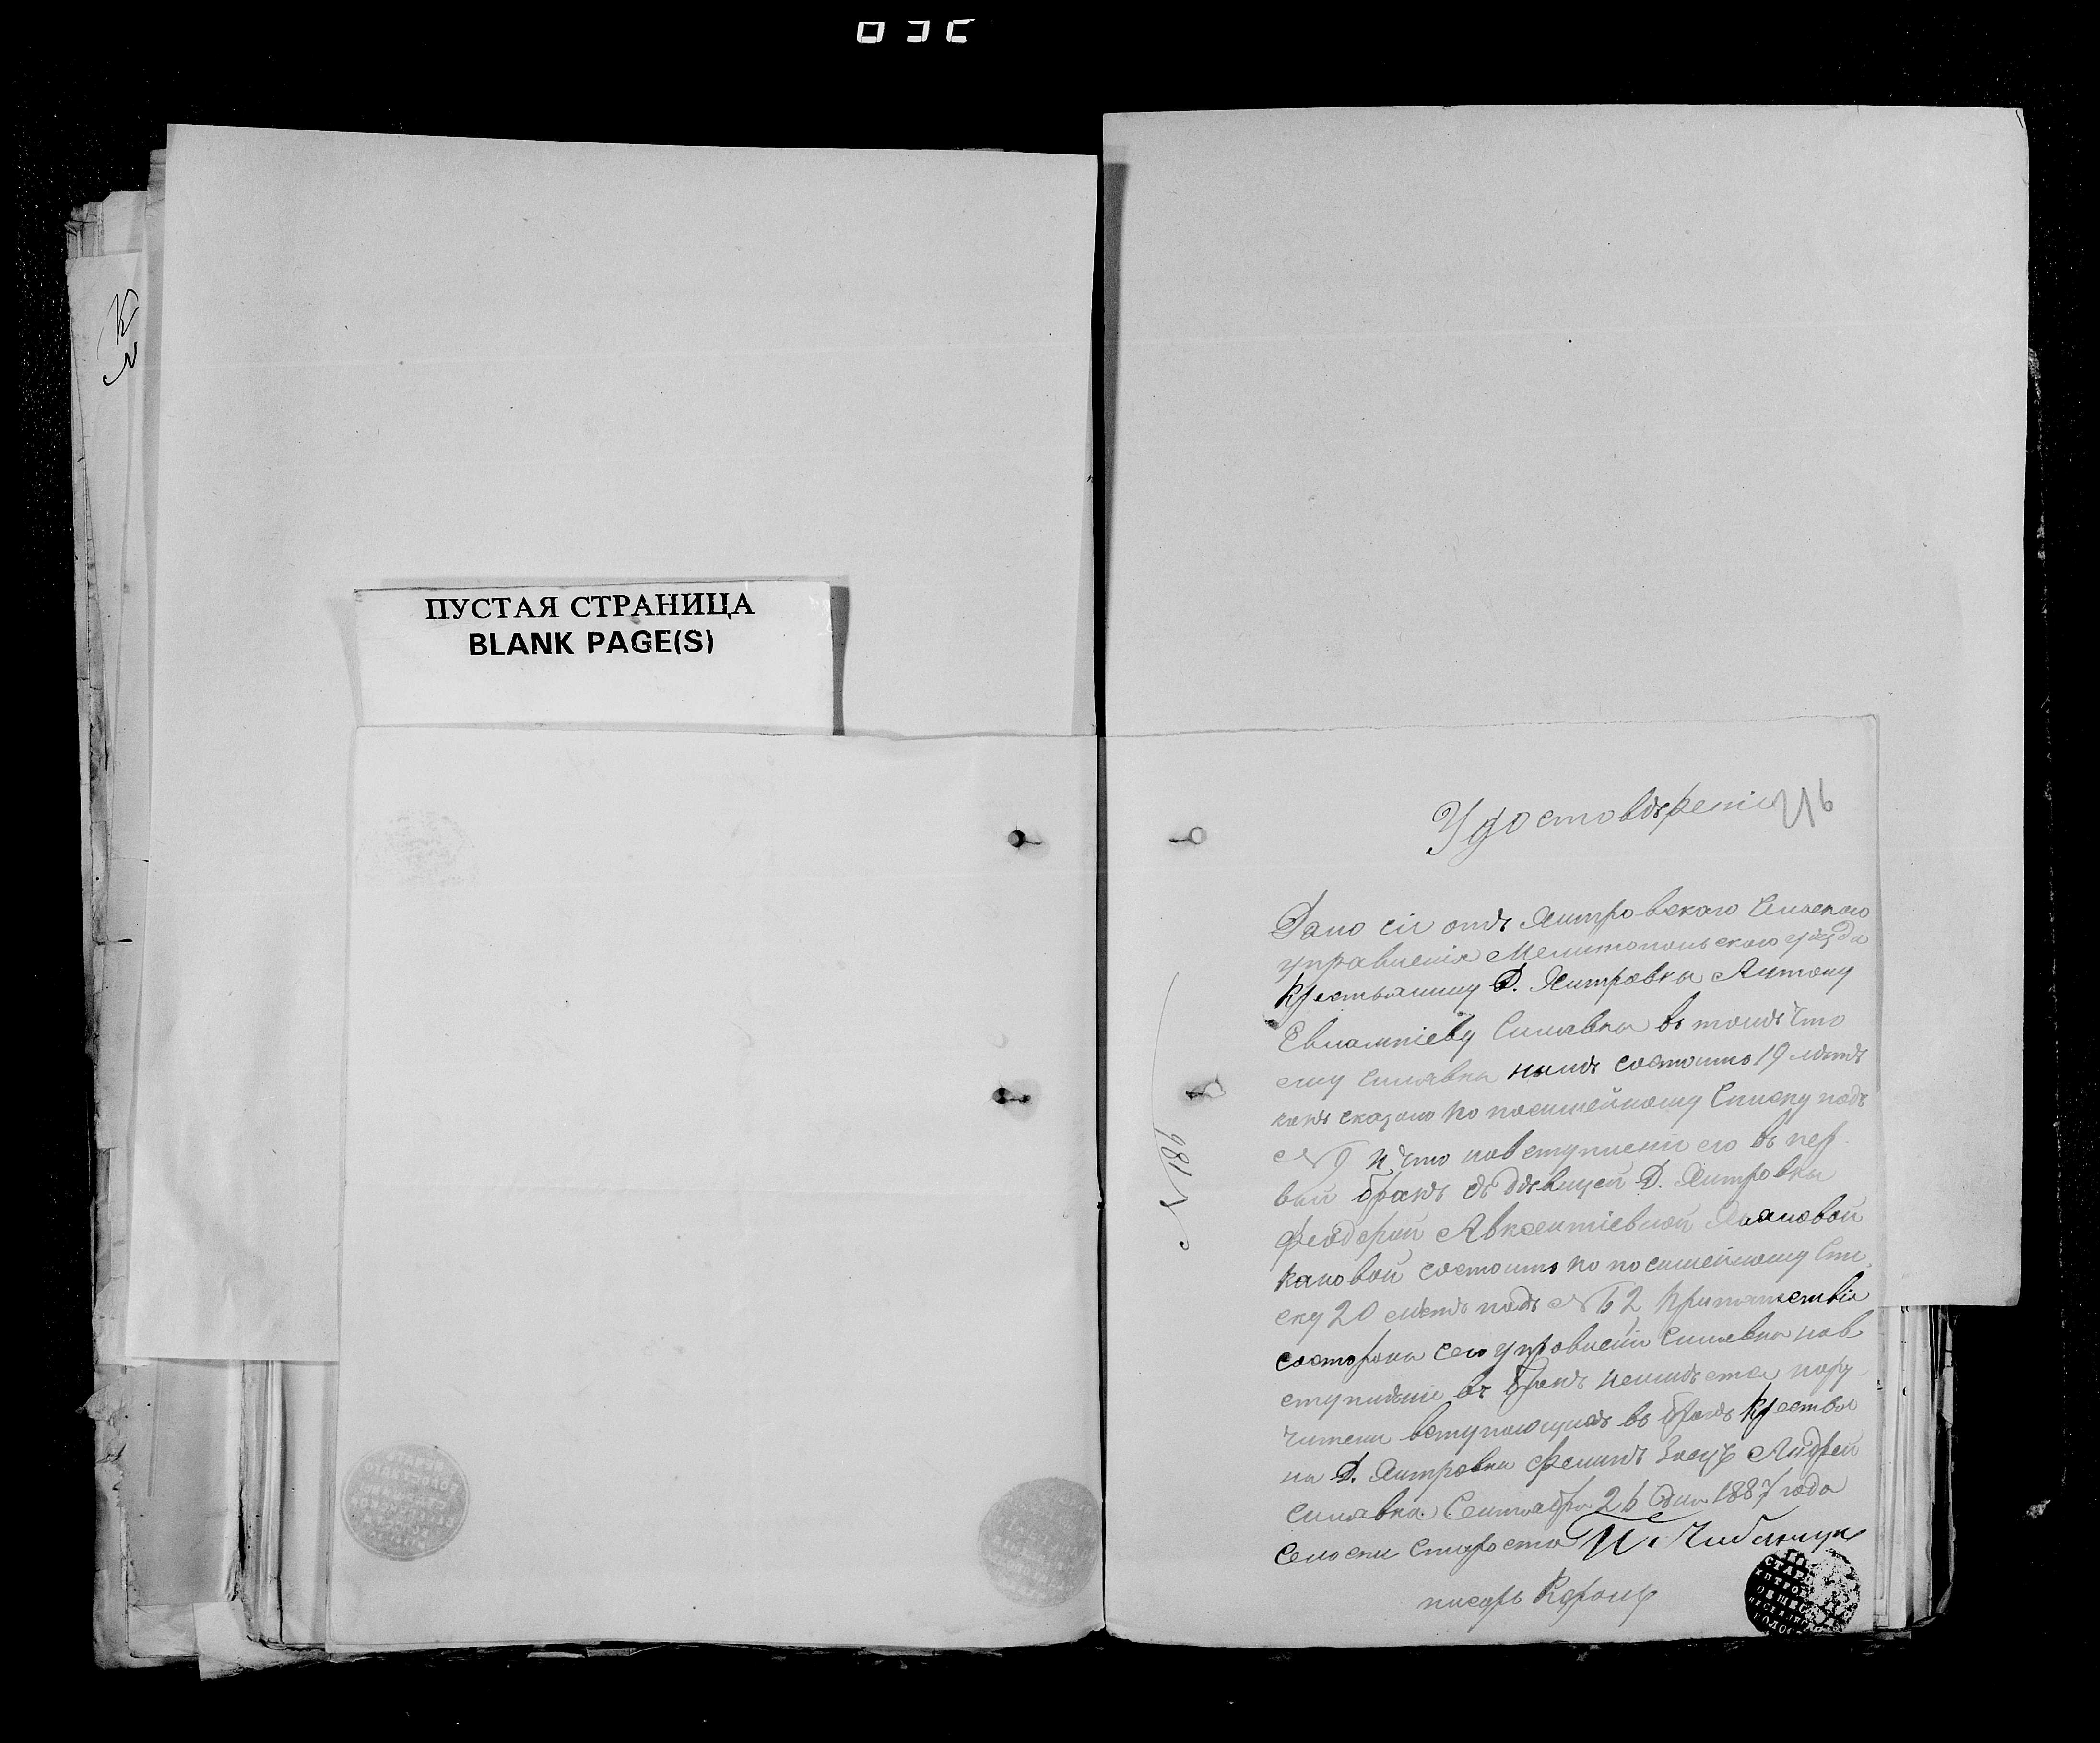 ПУСТАЯ СТРАНИЦА
BLANK PAGE(S)
Удостовѣреніе
Дано сіе отъ Хитровскаго Сельского
управленія Мелитопольского уѣзда
Крестьянину Д. Хитровки Антону
Евлампіеву Синявки въ томъ что
ему Синявки нынѣ состоитъ 19 лѣтъ
какъ сказано по посимейному Списку подъ
№ 9 и что повступленіи его въ пер-
вый бракъ съ дѣвицей Д. Хитровки
Феодорой Авксентіевной
состоитъ по посимейному Спи-
ску 20 лѣтъ подъ № 62 Припятствія
состороны сего управленія Синявки пов
ступленіи въ бракъ неимѣется пору-
чители вступающихъ въ бракъ Крестья
на Д. Хитровки Филипъ Заецъ Андрей
Синявка Сентября 26 дня 1887 года
Сельскій Староста И.
писарь
№ 186
СТАР
ХИТРО
ОБЩЕС
ВОЛОС